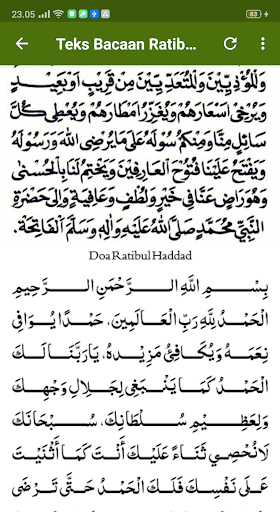 23.05
83
Teks Bacaan Ratib...
وَلِلْمُؤْذِيْنَ وَلِلْمُتَعَدِّيْنَ مِنْ قَرِيْبٍ اَوْبَعِيْدٍ
وَيُرْخِيْ اَسْعَارَهُمْ وَيُغَزِّرُ اَمْطَارَهُمْ وَيُعْطِيْ كُلَّ
سَائِلٍ مِنَّا وَمِنْكُمْ سُوْلَهُ عَلَى مَايُرْضِى اللهَ وَرَسُوْلَهُ
وَيَفْتَحُ عَلَيْنَا فُتُوْحَ الْعَارِفِيْنَ وَيَخْتِمُ لَنَا بِالْحُسْنٰى
وَهُوَرَاضٍ عَنَّا فِيْ خَيْرٍ وَلُطْفٍ وَعَافِيَةٍ وَاِلٰى حَضْرَةِ
النَّبِيِّ مُحَمَّدٍ صَلَّى اللهُ عَلَيْهِ وَاٰلِهِ وَسَلَّمَ اَلْفَاتِحَةَ.
Doa Ratibul Haddad
بِسْمِ اللهِ الرَّحْمَنِ الرَّحِيْمِ
الْحَمْدُ لِلَّهِ رَبِّ الْعَالَمِيْنَ، حَمْدًا يُوَافِي
نِعَمَهُ وَيُكَافِئُ مَزِيْدَهُ، يَارَبَّنَا لَكَ
الْحَمْدُ كَمَا يَنْبَغِي لِجَلَالِ وَجْهِكَ
وَلِعَظِيْمِ سُلْطَانِكَ، سُبْحَانَكَ
لَانُحْصِي ثَنَاءً عَلَيْكَ أَنْتَ كَمَا أَثْنَيْتَ
عَلَى نَفْسِكَ فَلَكَ الْحَمْدُ حَتَّى تَرْضَى